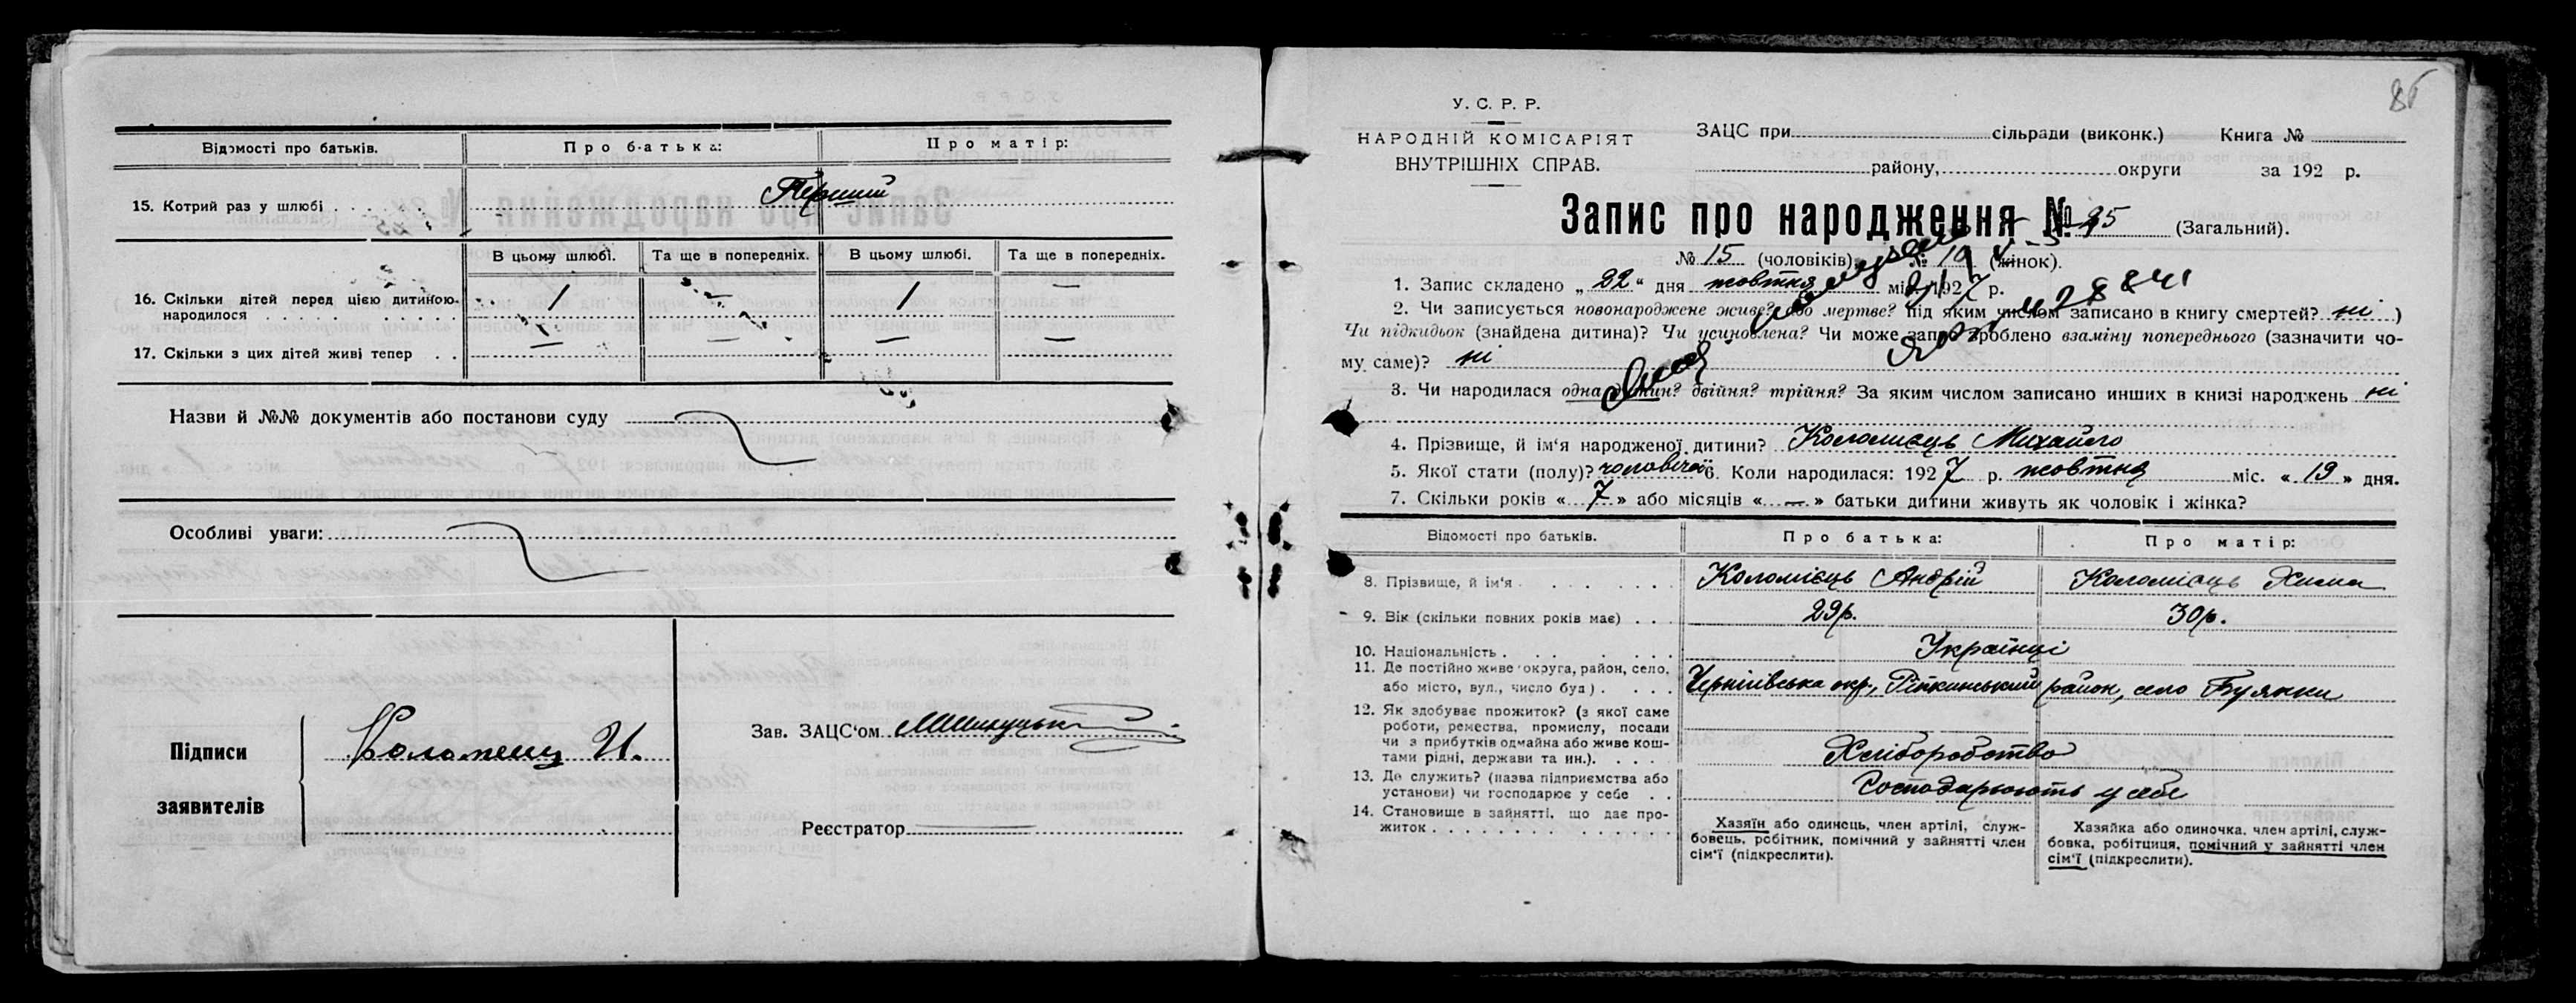 Відомості про батьків.
Про батька:
Про матір:
15. Котрий раз у шлюбі
Перший
В цьому шлюбі.
Та ще в попередніх.
В цьому шлюбі.
Та ще в попередніх.
16. Скільки дітей перед цією дитиною
народилося
1
—
1
—
17. Скільки з цих дітей живі тепер
—
—
—
—
Назви й №№ документів або постанови суду
Особливі уваги:
Підписи
заявителів
Зав. ЗАЦС'ом
Реєстратор
У. С. Р. Р.
НАРОДНІЙ КОМІСАРІЯТ
ВНУТРІШНІХ СПРАВ.
ЗАЦС при сільради (виконк.) Книга №
району, округи за 192 р.
Запис про народження № 25 (Загальний).
№ 15 (чоловіків), № 10 (жінок).
1. Запис складено „ 22 “ дня жовтня міс. 1927 р.
2. Чи записується новонароджене живе? або мертве? під яким числом записано в книгу смертей? ні )
Чи підкидьок (знайдена дитина)? Чи усиновлена? Чи може запис зроблено взаміну попереднього (зазначити чо-
му саме)? ні
3. Чи народилася одна дитин? двійня? трійня? За яким числом записано инших в книзі народжень ні
4. Прізвище, й ім'я народженої дитини? Коломієць Михайло
5. Якої стати (полу)? чоловічої 6. Коли народилася: 1927 р. жовтня міс. « 19 » дня.
7. Скільки років « 7 » або місяців « — » батьки дитини живуть як чоловік і жінка?
Відомості про батьків.
Про батька:
Про матір:
8. Прізвище, й ім'я
Коломієць Андрій
Коломієць Химa
9. Вік (скільки повних років має)
29р.
30р.
10. Національність
Українці
11. Де постійно живе округа, район, село,
або місто, вул., число буд)
Чернігівська окр., Ріпкинський район, село Буянки
12. Як здобуває прожиток? (з якої саме
роботи, ремества, промислу, посади
чи з прибутків одмайна або живе кош-
тами рідні, держави та ин.).
Хліборобство
13. Де служить? (назва підприємства або
установи) чи господарює у себе
Господарюють у себе
14. Становище в зайнятті, що дає про-
житок
Хазяїн або одинець, член артілі, служ-
бовець, робітник, помічний у зайнятті член
сім'ї (підкреслити).
Хазяйка або одиночка, член артілі, служ-
бовка, робітниця, помічний у зайнятті член
сім'ї (підкреслити).